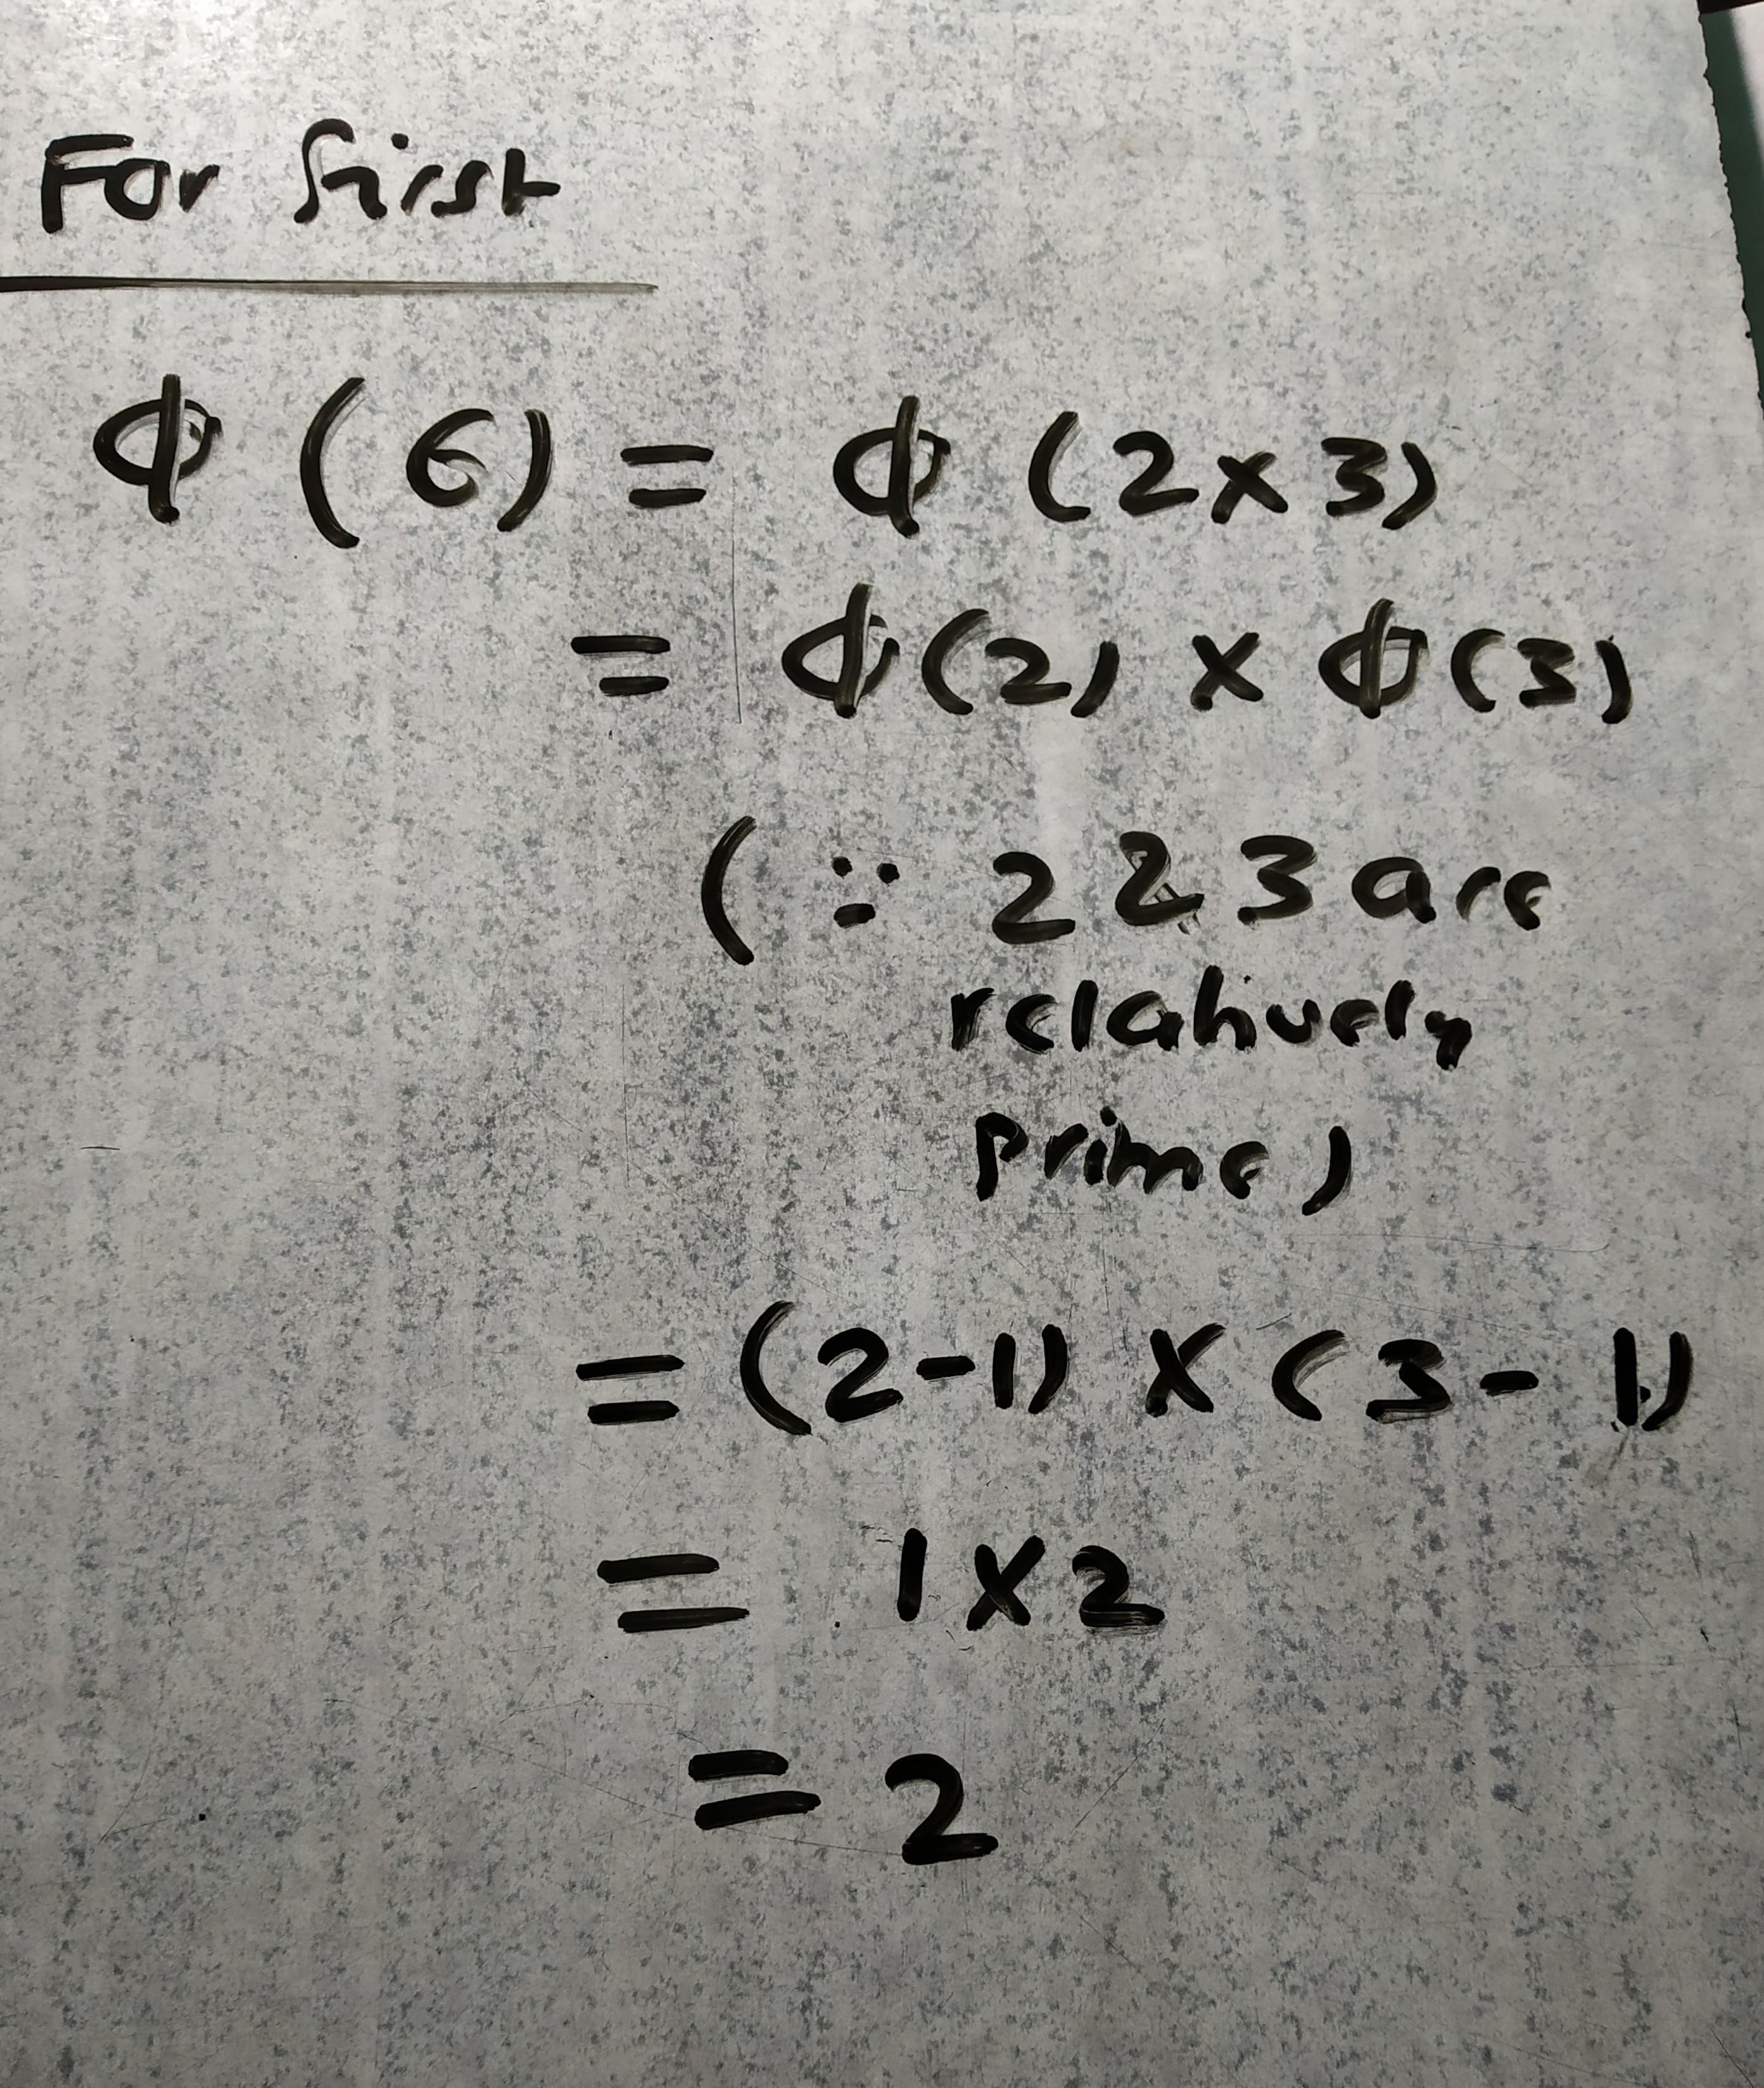 For first
ϕ (6) = ϕ (2x3)
= ϕ(2) x ϕ(3)
(∵ 2 & 3 are
relatively
prime)
= (2-1) x (3-1)
= 1x2
= 2